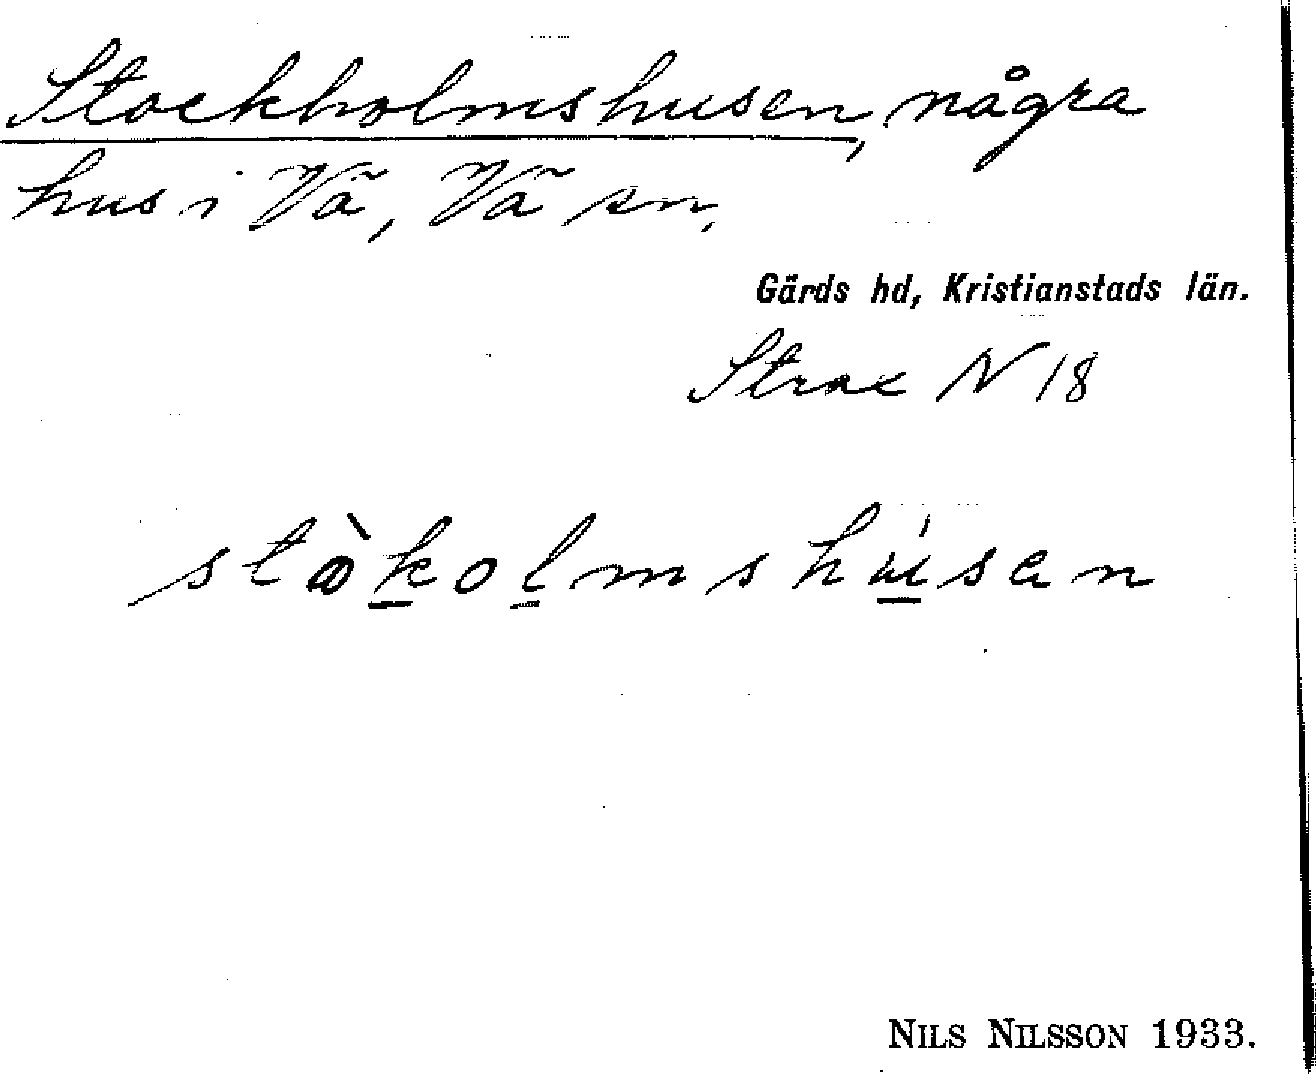 Stockholmshusen, några
hus i Vä, Vä sn.
Gärds hd, Kristianstads län.
Strax N 18
stòkolmshúsen
NILS NILSSON 1933.